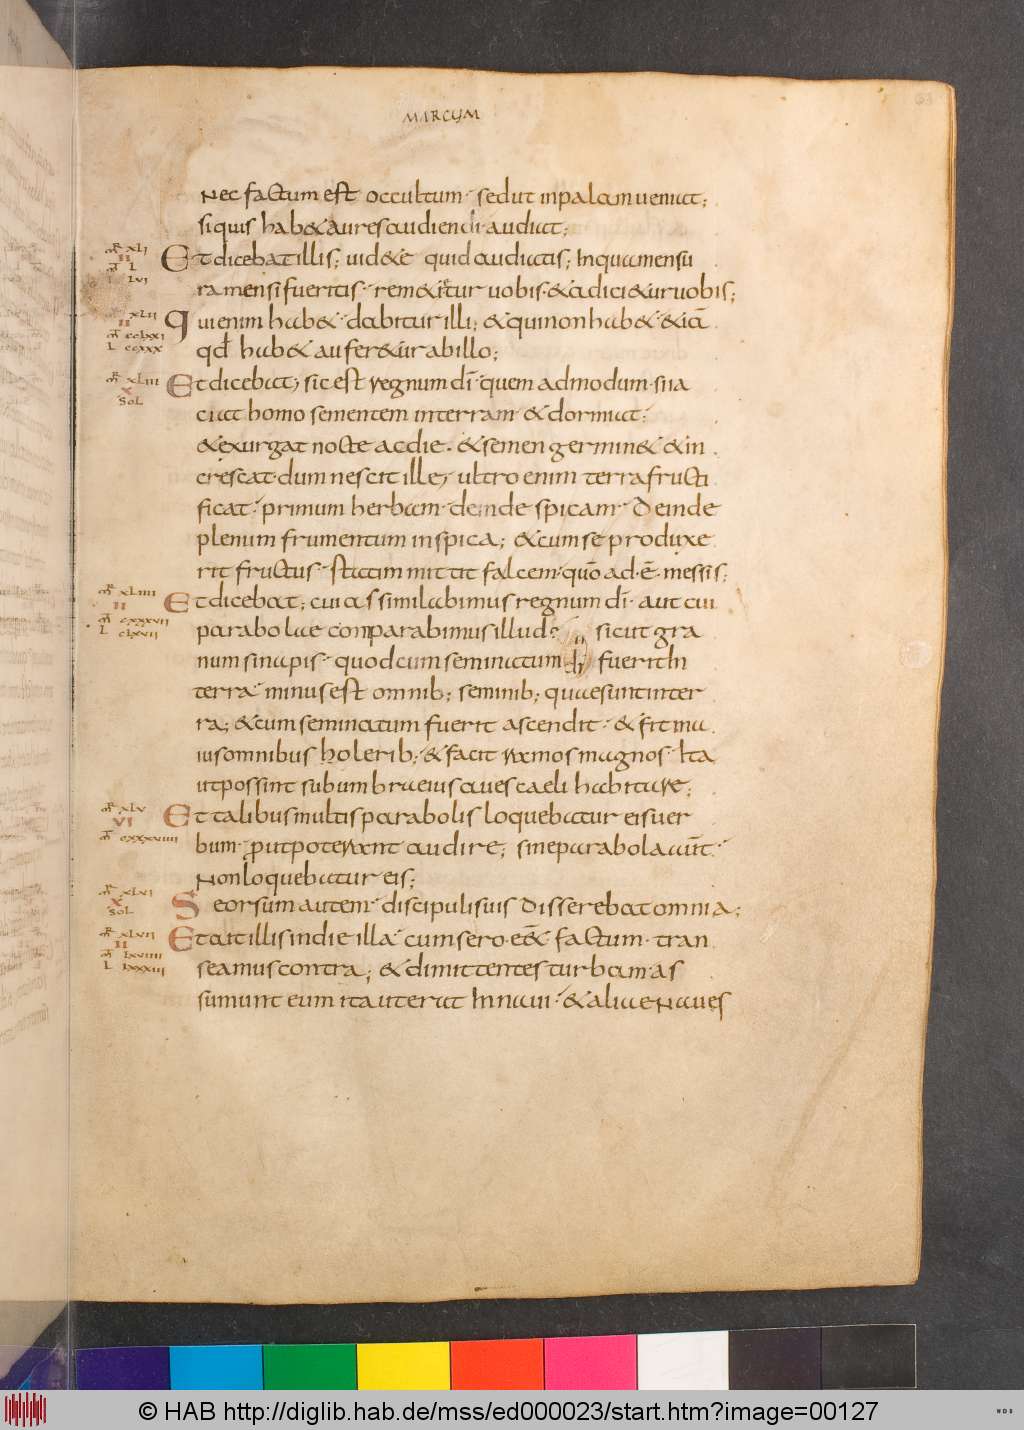 MARCUM
63
Nec factum est occultum· sed ut inpalam ueniat;
siquis hab& aures audiendi audiat;
mr xli
II
mt l
l lvi
Et dicebat illis; uid&e quid audiatis; Inqua mensu
ra mensi fueritis· rem&i&ur uobis· & adici&ur uobis;
mr xlii
II
mt cclxxi
L ccxxx
Qui enim hab& dabitur illi; & qui non hab& &iā
qđ hab& aufer&ur ab illo;
mr xliii
X
sol
Et dicebat, sic est regnum dī quem admodum siia
ciat homo sementem interram & dormiat·
& exurgat nocte ac die· & semen germin& & in
crescat· dum nescit ille, ultro enim terra fructi
ficat· primum herbam· deinde spicam· Deinde
plenum frumentum inspica; & cum se produxe
rit fructus· statim mittit falcem· quō ad·ē· messis;
mr xliiii
II
mt cxxxvii
L clxvii
Et dicebat; cui assimilabimus regnum dī· aut cui
parabolae conparabimus illud· sicut gra
num sinapis· quod cum seminatum fuerit In
terra minus est omnib; seminib; quae sunt inter
ra; & cum seminatum fuerit ascendit· & fit ma
ius omnibus holerib; & facit ramos magnos· Ita
ut possint sub umbra eius aues caeli habitare;
mr xlv
VI
mt cxxxviiii
Et talibus multis parabolis loquebatur eis uer
bum· prout poterant audire; sine parabola aut̄
Non loquebatur eis;
mr xlvi
X
sol
Seorsum autem discipulis suis Disserebat omnia;
mr xlvii
II
mt lxviiii
L lxxxiii
Et ait illis in die illa cum sero· ee& factum· tran
seamus contra; & dimittentes turbam as
sumunt eum ita ut erat In naui· & aliae Naues
© HAB http://diglib.hab.de/mss/ed000023/start.htm?image=00127
WDB